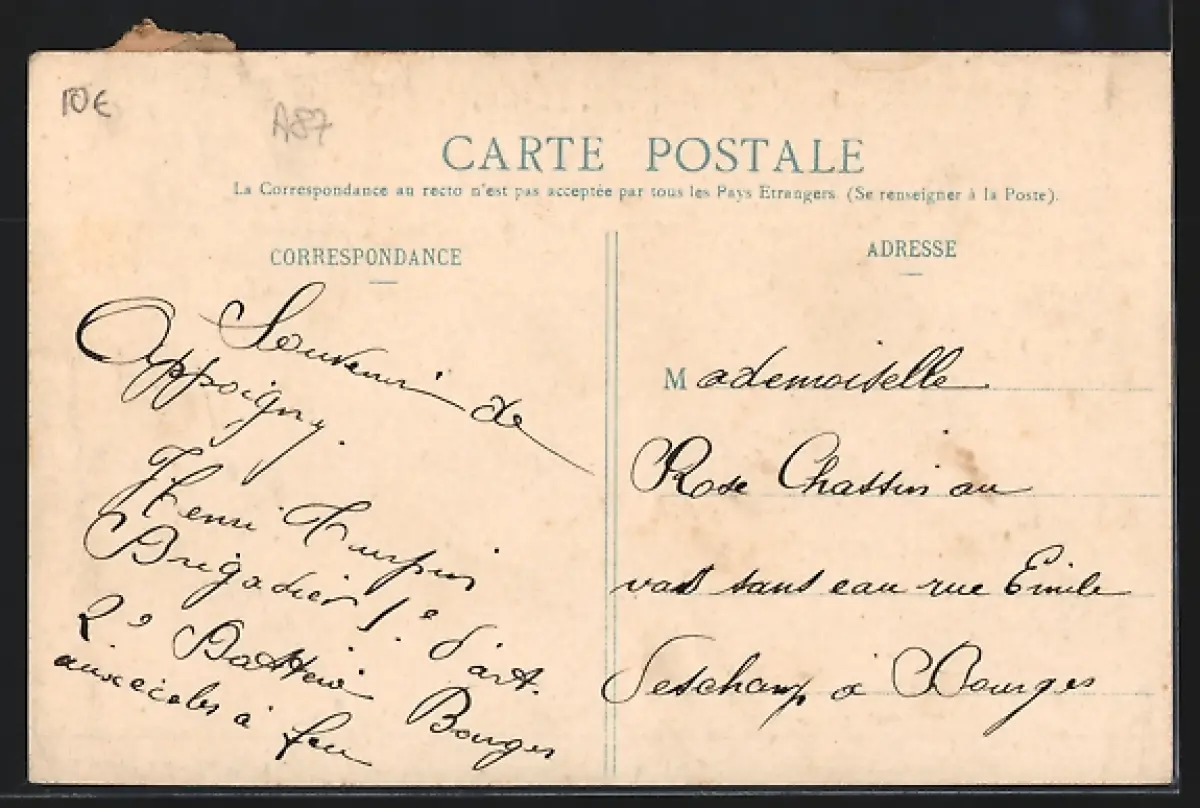 10€
A87
CARTE POSTALE
La Correspondance au recto n'est pas acceptée par tous les Pays Etrangers. (Se renseigner à la Poste).
CORRESPONDANCE
Souvenir de
Appoigny.
Henri
Brigadier 1e d'art.
2e Batterie Bourges
aux écoles à feu
ADRESSE
Mademoiselle
Rose Chassin au
sans eau rue Emile
à Bourges